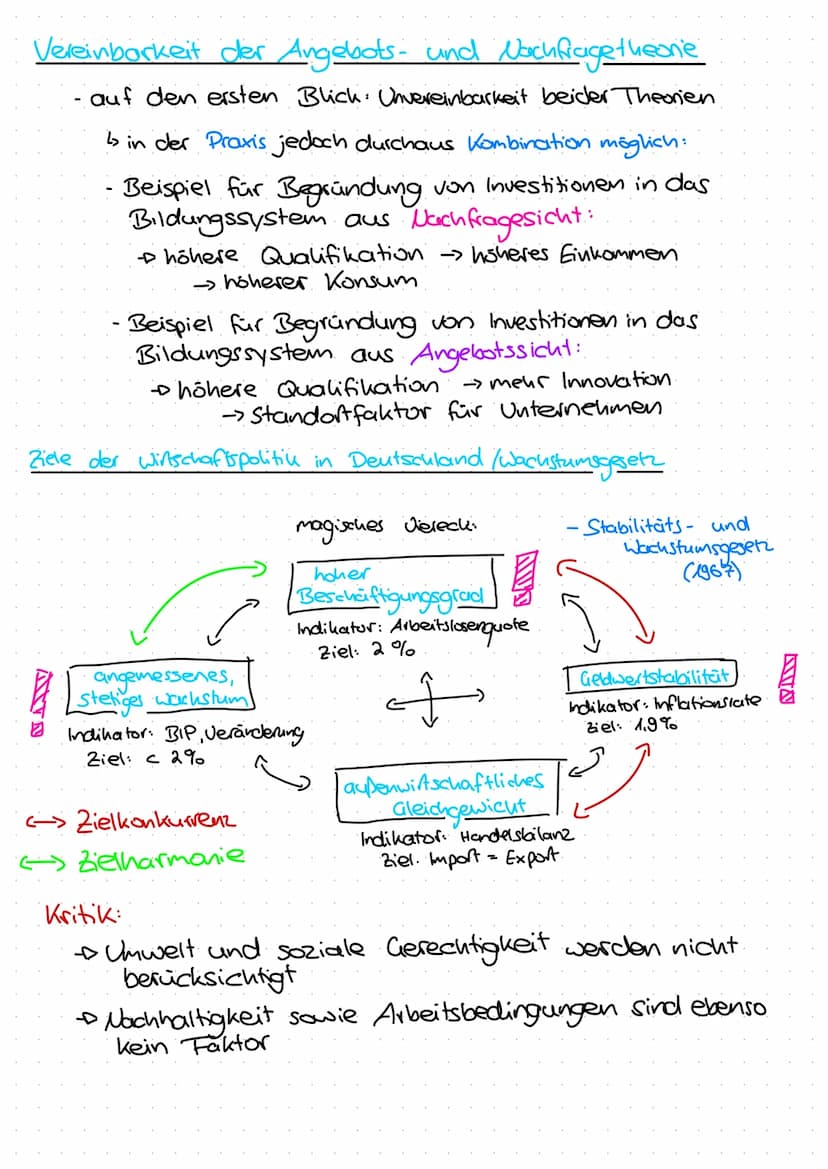 Vereinbarkeit der Angebots- und Nachfragetheorie
- auf den ersten Blick: Unvereinbarkeit beider Theorien
↳ in der Praxis jedoch durchaus Kombination möglich:
- Beispiel für Begründung von Investitionen in das
Bildungssystem aus Nachfragesicht:
→ höhere Qualifikation → höheres Einkommen
→ höherer Konsum
- Beispiel für Begründung von Investitionen in das
Bildungssystem aus Angebotssicht:
→ höhere Qualifikation → mehr Innovation
→ Standortfaktor für Unternehmen
Ziele der Wirtschaftspolitik in Deutschland/Wachstumsgesetz
magisches Viereck:
- Stabilitäts- und
Wachstumsgesetz
(1967)
hoher
Beschäftigungsgrad
Indikator: Arbeitslosenquote
Ziel: 2 %
angemessenes,
stetiges Wachstum
Indikator: BIP, Veränderung
Ziel: < 2%
Geldwertstabilität
Indikator: Inflationsrate
Ziel: 1,9%
außenwirtschaftliches
Gleichgewicht
Indikator: Handelsbilanz
Ziel: Import = Export
↔ Zielkonkurrenz
↔ Zielharmonie
Kritik:
→ Umwelt und soziale Gerechtigkeit werden nicht
berücksichtigt
→ Nachhaltigkeit sowie Arbeitsbedingungen sind ebenso
kein Faktor